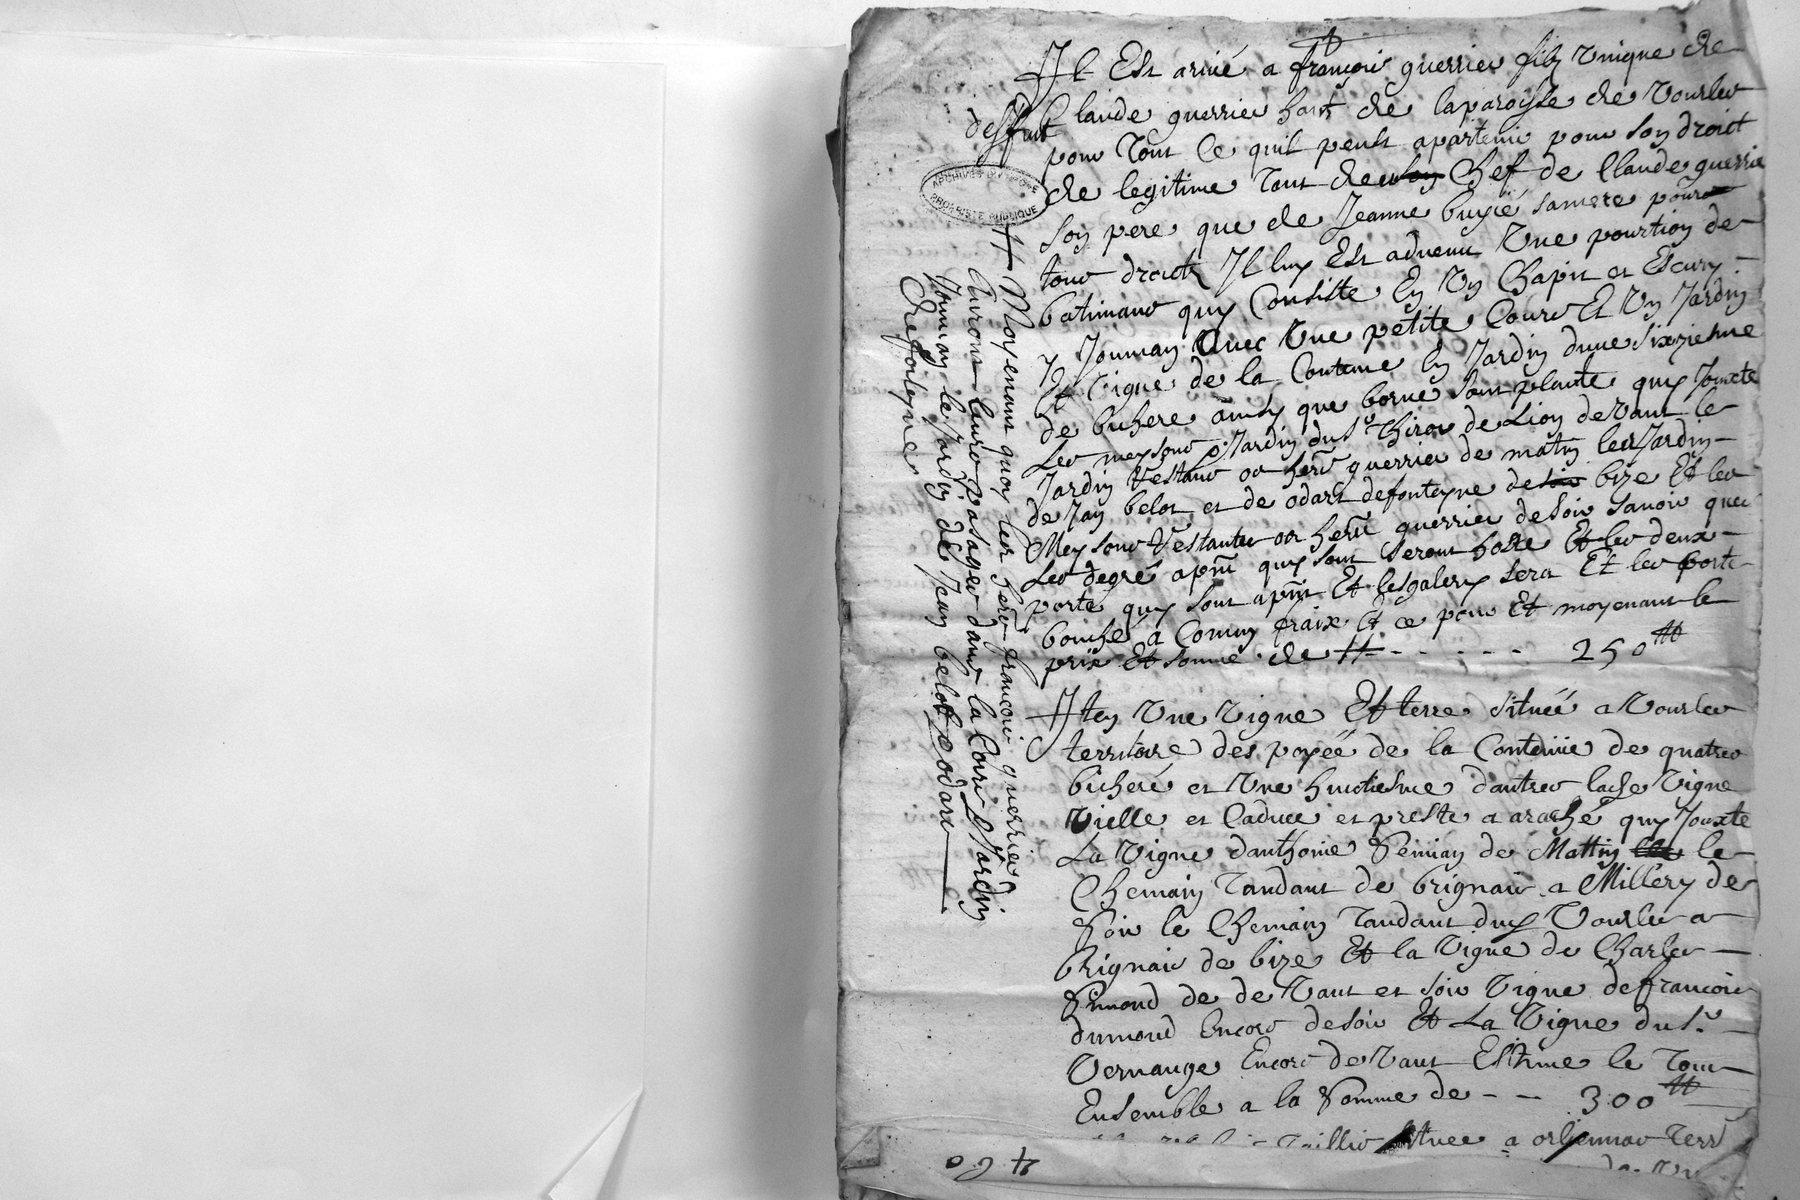 Il Est arivé a françois guerrier filz Unique de
deffunt Claude guerrier hoste de laparoysse de Vourles
pour Tout Ce quil peult apartenir pour son droict
de legitime Tant de son Chef de Claude guerrier
Son pere que de Jeanne buyié samere pour
tous droictz Il luy Est advenu Une pourtion de
batimans quy Consiste En Un Chapit et Escury
y Joumian Avec Une petite Cour Et Un Jardin
Et Vigne de la Contenue En Jardin dune sixziesme
de bichere ainsy que borne sont planté quy Jouxte
Les maysons Jardin du Sr Thirou de Lion de Vant le
Jardin Restant aux herr guerrier de matin les Jardin
de Jan belot et de odart defonteyne de soir bize Et les
Meysons Restantes aux herr guerrier de soir savoir que
Les degré apnt quy sont seront hosté Et les deux
porte quy sont apnt Et lesgalery sera Et les porte
bouché a Comun fraix Et ce pour Et moyenant le
prix Et somme de # - - - - - 250 ₶
# Moyenant quoy les herr francois guerrier
Auront leurs pasages dans la Cour & Jardin
Joumian le Jardin de Jean belot & odart
Defonteyne
ARCHIVES DU RHONE
PROPRIÉTÉ PUBLIQUE
Item Une Vigne Et terre située a Vourles
territoire des poyéé de la Contenue de quatres
bicheré et Une huictiesme dautres lache Vigne
Vielle et Caduce et preste a araché quy Jouxte
La Vigne danthoine Simian de Mattin le
Chemain Tandant de brignais a Millery de
Soir le Chemain Tandant duy Vourles a
brignais de bize Et la Vigne de Charles
Simond de de Vant et soir Vigne defrancois
dumond Encors desoir Et La Vigne du Sr
Vernange Encors de Vant Estime le Tout
Ensemble a la Somme de - - 300 ₶
Taillis situee a orlienas Terr